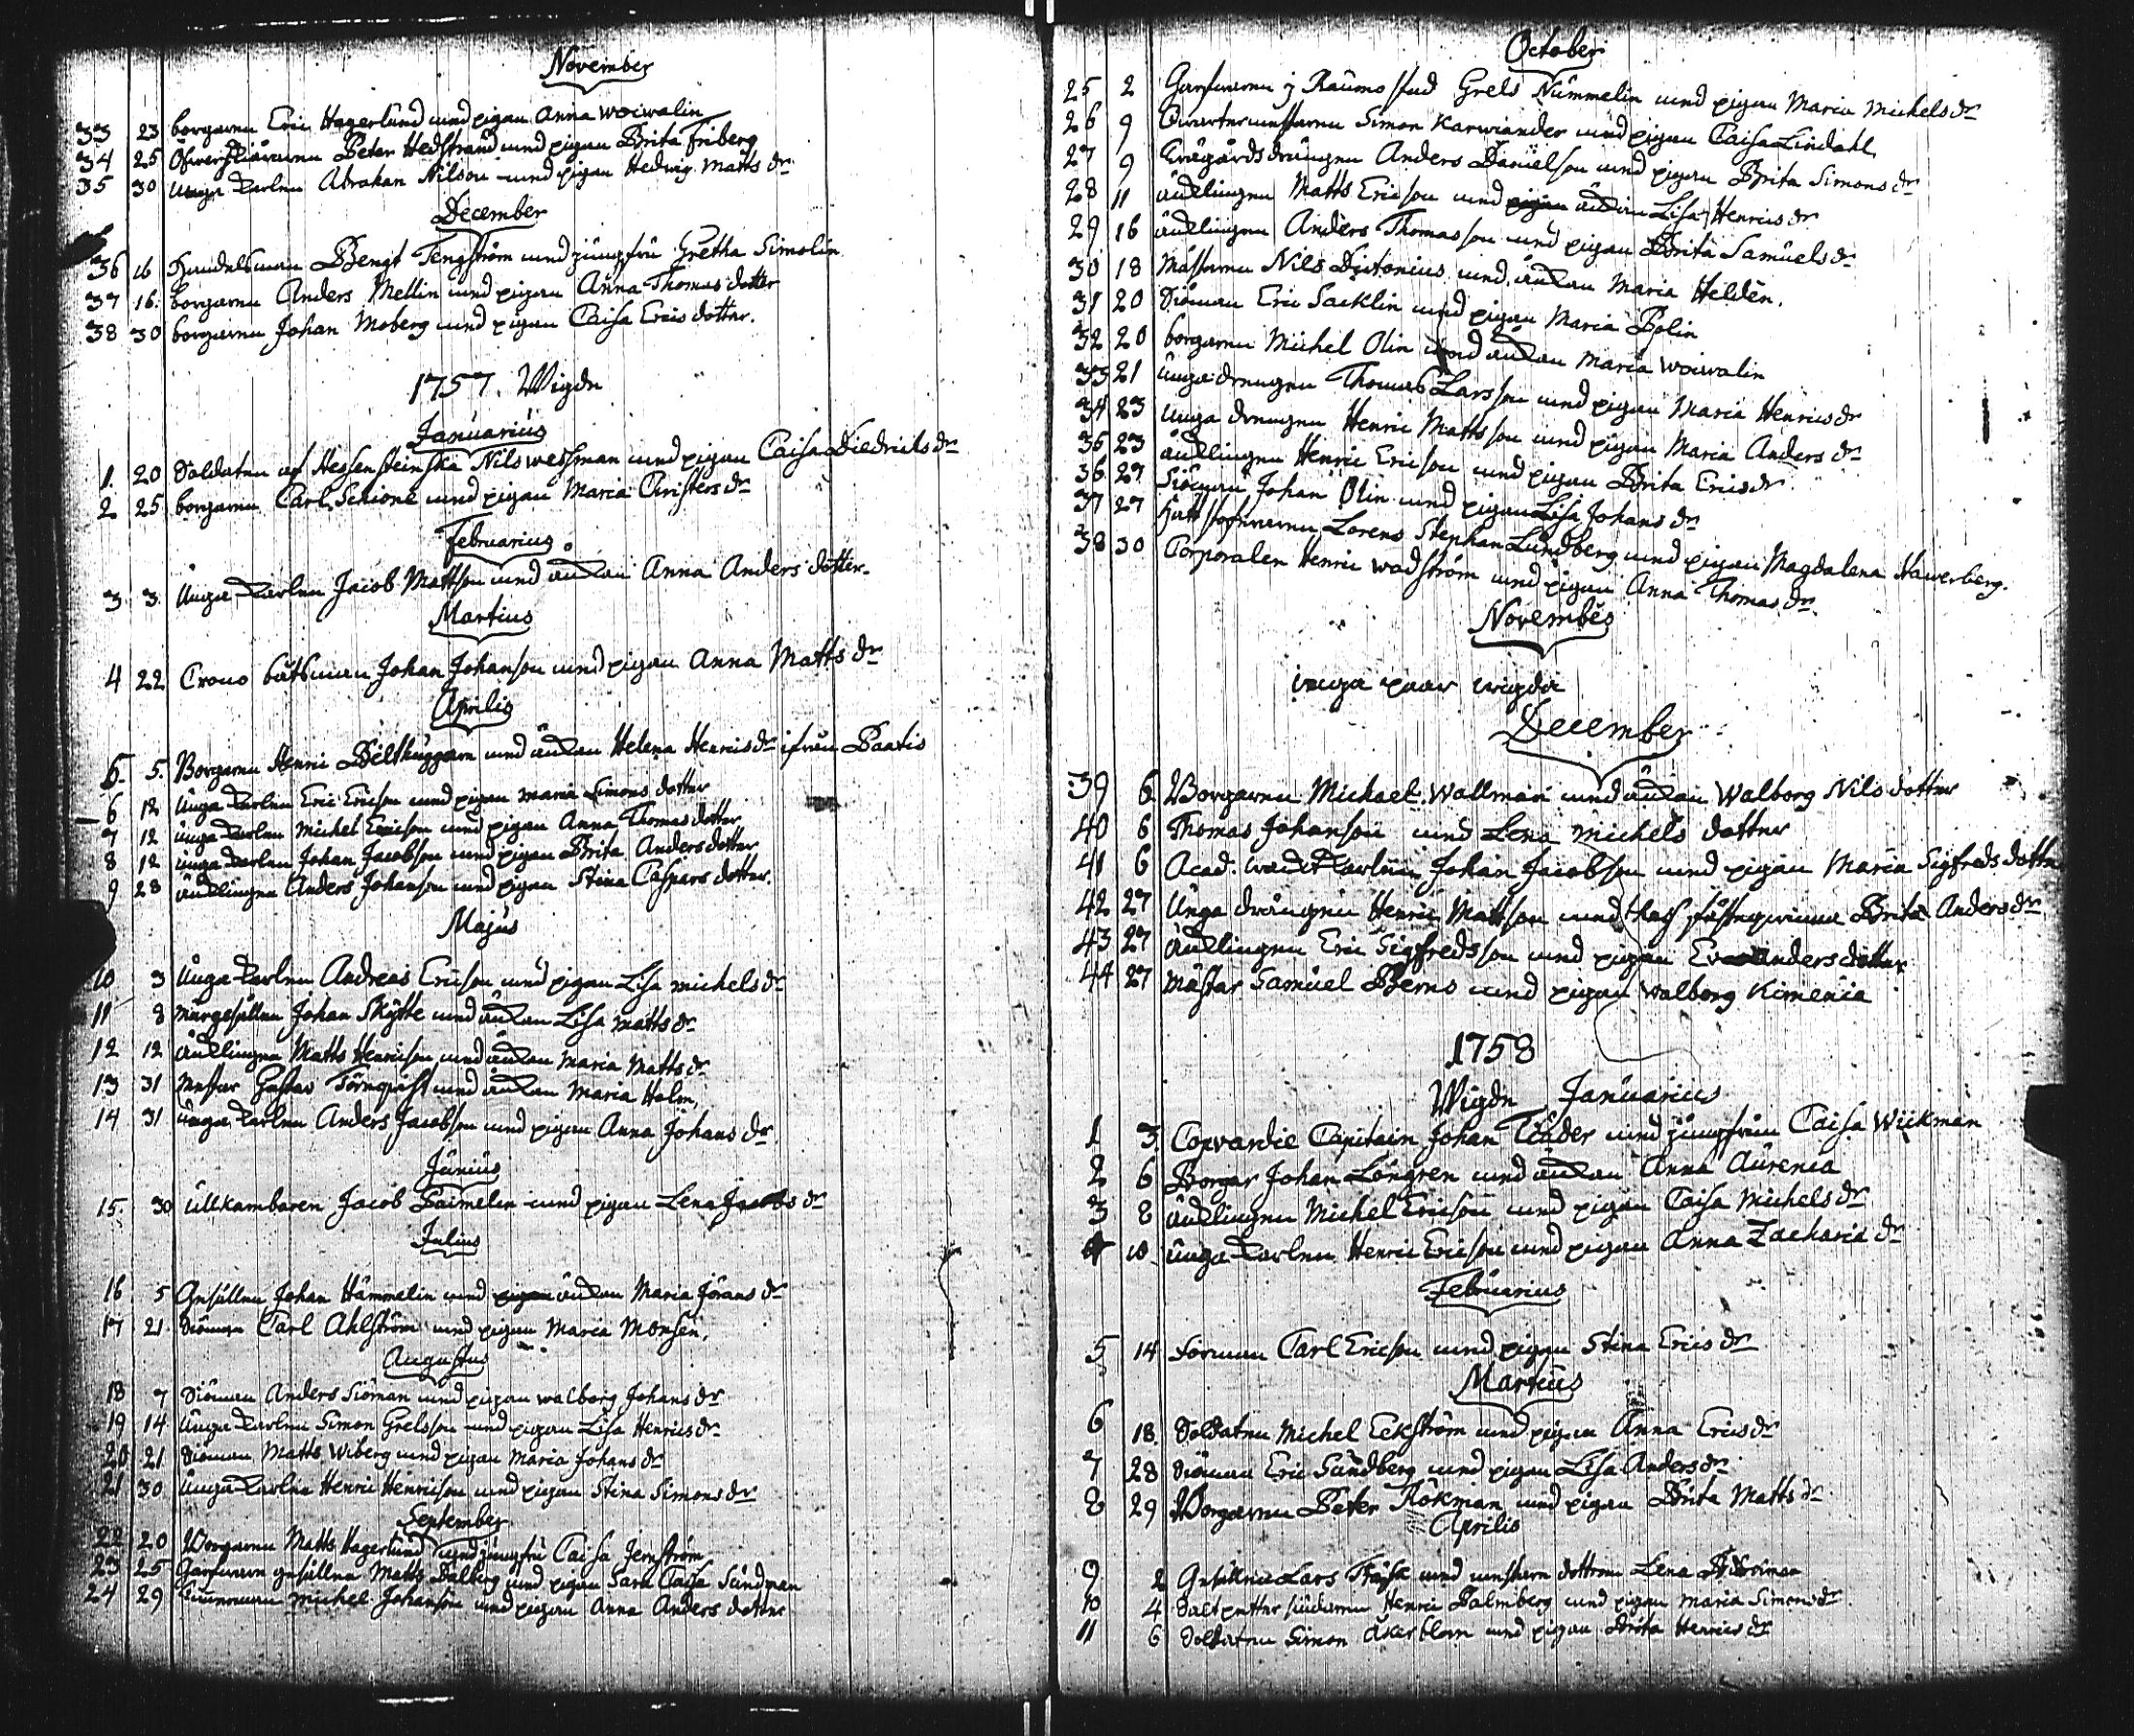 November
33 23 borgaren Eric Hagerlund med pigan Anna Woiwalin
34 25 Peter Hedstrand med pigan Brita Friberg
35 30 unga Karlen Abraham Nilson med pigan Hedwig Matts dr
December
36 16 Handelsman Bengt Tengström med jungfru Gretha Simolin
37 16. borgaren Anders Mellin med pigan Anna Thomas dotter
38 30 borgaren Johan Moberg med pigan Caisa Erics dotter.
1757. Wigde
Januarius
1. 20 Soldaten af Hessensteinska Nils Wessman med pigan Caisa Diedrichs dr
2 25 borgaren Carl Schione med pigan Maria Christers dr
Februarius.
3 3. Unga Karlen Jacob Mattson med änkan Anna Anders dotter.
Martius
4 22 Crono båtsman Johan Johanson med pigan Anna Matts dr
Aprilis
5. 5. Borgaren Henric Bälthuggare med änkan Helena Henricsdr ifrån Paavis
6 12 Unga Karlen Eric Ericson med pigan Maria Simons dotter
7 12 unga Karlen Michel Ericson med pigan Anna Thomas dotter
8 12 unga Karlen Johan Jacobson med pigan Brita Anders dotter
9 28 änklingen Anders Johanson med pigan Stina Caspars dotter.
Majus
10 3 Unga Karlen Andreas Ericson med pigan Lisa Michels dr
11 8 murgesällen Johan Skytte med änkan Lisa Matts dr
12 12 änklingen Matts Henricson med änkan Maria Matts dr
13 31 Mestar Gustav Törnqvist med änkan Maria Holm.
14 31 Unga Karlen Anders Jacobson med pigan Anna Johans dr
Junius
15. 30 ullkambaren Jacob Paimelin med pigan Lena Jacobs dr
Julius
16 5 Gesällen Johan Hammelin med pigan änkan Maria Jörans dr
17 21. Siöman Carl Ahlström med pigan Maria Monsen.
Augustus
18 7 Siöman Anders Siöman med pigan Walborg Johans dr
19 14 Unga Karlen Simon Grelsson med pigan Lisa Henrics dr
20 21 Siöman Matts Wiberg med pigan Maria Johans dr
21 30 Unga Karlen Henric Henricson med pigan Stina Simons dr
September
22 20 Borgaren Matts Hagerlund med jungfru Caisa Jernström
23 25 Garfware gesällen Matts Dalberg med pigan Sara Caisa Sundman
24 29 Timerman Michel Johanson med pigan Anna Anders dotter
October
25 2 Garfwaren i Raumo stad Grels Nummelin med pigan Maria Michels dr
26 9 Simon Karwiander med pigan Caisa Lindahl.
27 9 Anders Danielson med pigan Brita Simons dr
28 11 änklingen Matts Ericson med pigan änkan Lisa Henrics dr
29 16 änklingen Anders Thomasson med pigan Brita Samuels dr
30 18 Mästaren Nils Dictonius med änkan Maria Heldén.
31 20 Siöman Eric Sacklin med pigan Maria Polin
32 20 borgaren Michel Olin med änkan Maria Woiwalin
33 21 Unga drengen Thomas Larsson med pigan Maria Henrics dr
34 23 unga drengen Henric Mattsson med pigan Maria Anders dr
35 23 änklingen Henric Ericson med pigan Brita Erics dr
36 27 Siöman Johan Olin med pigan Lisa Johans dr
37 27 Lorens Stephan Lundberg med pigan Magdalena Hawerberg.
38 30 Corporalen Henric Wadström med pigan Anna Thomas dr.
November
inga paar wigda
December
39 6. Borgaren Michael Wallman med änkan Walborg Nils dotter
40 6 Thomas Johanson med Lena Michels dotter
41 6 Acad. wacktkarlen Johan Jacobson med pigan Maria Sigfreds dotter
42 27 Unga drängen Henric Mattson med thes fästeqvinna Brita Anders dr
43 27 änklingen Eric Sigfredsson med pigan Eva Anders dotter
44 27 mästar Samuel Berns med pigan Walborg Kimenia
1758
Wigde Januarius
1 3. Copvardie Capitain Johan Tönder med jungfrun Caisa Wiikman
2 6 Borgar Johan Löngren med änkan Anna Aurenia
3 8 änklingen Michel Ericson med pigan Caisa Michels dr
4 10. unga Karlen Henric Ericson med pigan Anna Zacharia dr
Februarius
5 14 Forman Carl Ericson med pigan Stina Erics dr
Martius
6 18. Soldaten Michel Eckström med pigan Anna Erics dr
7 28 Siöman Eric Sundberg med pigan Lisa Anders dr
8 29 Borgaren Peter Rökman med pigan Brita Matts dr
Aprilis
9 2 Gesällen Lars med dottren Lena
10 4 Saltpetter siudaren Henric Palmberg med pigan Maria Simons dr
11 6 Soldaten Simon Åkerblom med pigan Brita Henrics dr